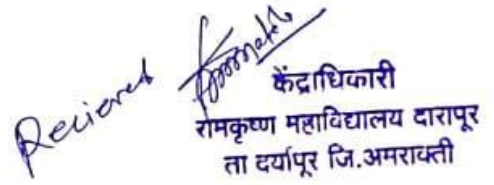 Recieved
केंद्राधिकारी
रामकृष्ण महाविद्यालय दारापूर
ता दर्यापूर जि.अमरावती